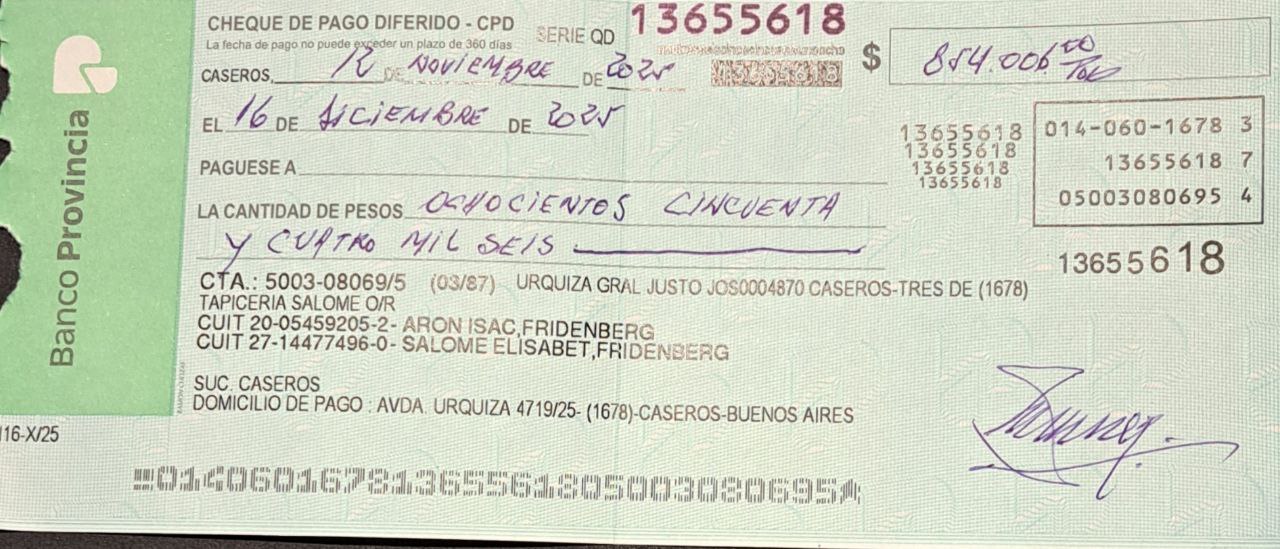 Banco Provincia
CHEQUE DE PAGO DIFERIDO - CPD
La fecha de pago no puede exceder un plazo de 360 días
SERIE QD 13655618
13655618
$ 854.006 00/100
CASEROS, 12 DE NOVIEMBRE DE 2025
EL 16 DE DICIEMBRE DE 2025
13655618
13655618
13655618
13655618
014-060-1678 3
13655618 7
05003080695 4
PAGUESE A
LA CANTIDAD DE PESOS OCHOCIENTOS CINCUENTA
Y CUATRO MIL SEIS
13655618
CTA.: 5003-08069/5 (03/87) URQUIZA GRAL JUSTO JOS0004870 CASEROS-TRES DE (1678)
TAPICERIA SALOME O/R
CUIT 20-05459205-2- ARON ISAC,FRIDENBERG
CUIT 27-14477496-0- SALOME ELISABET,FRIDENBERG
SUC. CASEROS
DOMICILIO DE PAGO : AVDA. URQUIZA 4719/25- (1678)-CASEROS-BUENOS AIRES
116-X/25
01406016781365561805003080695